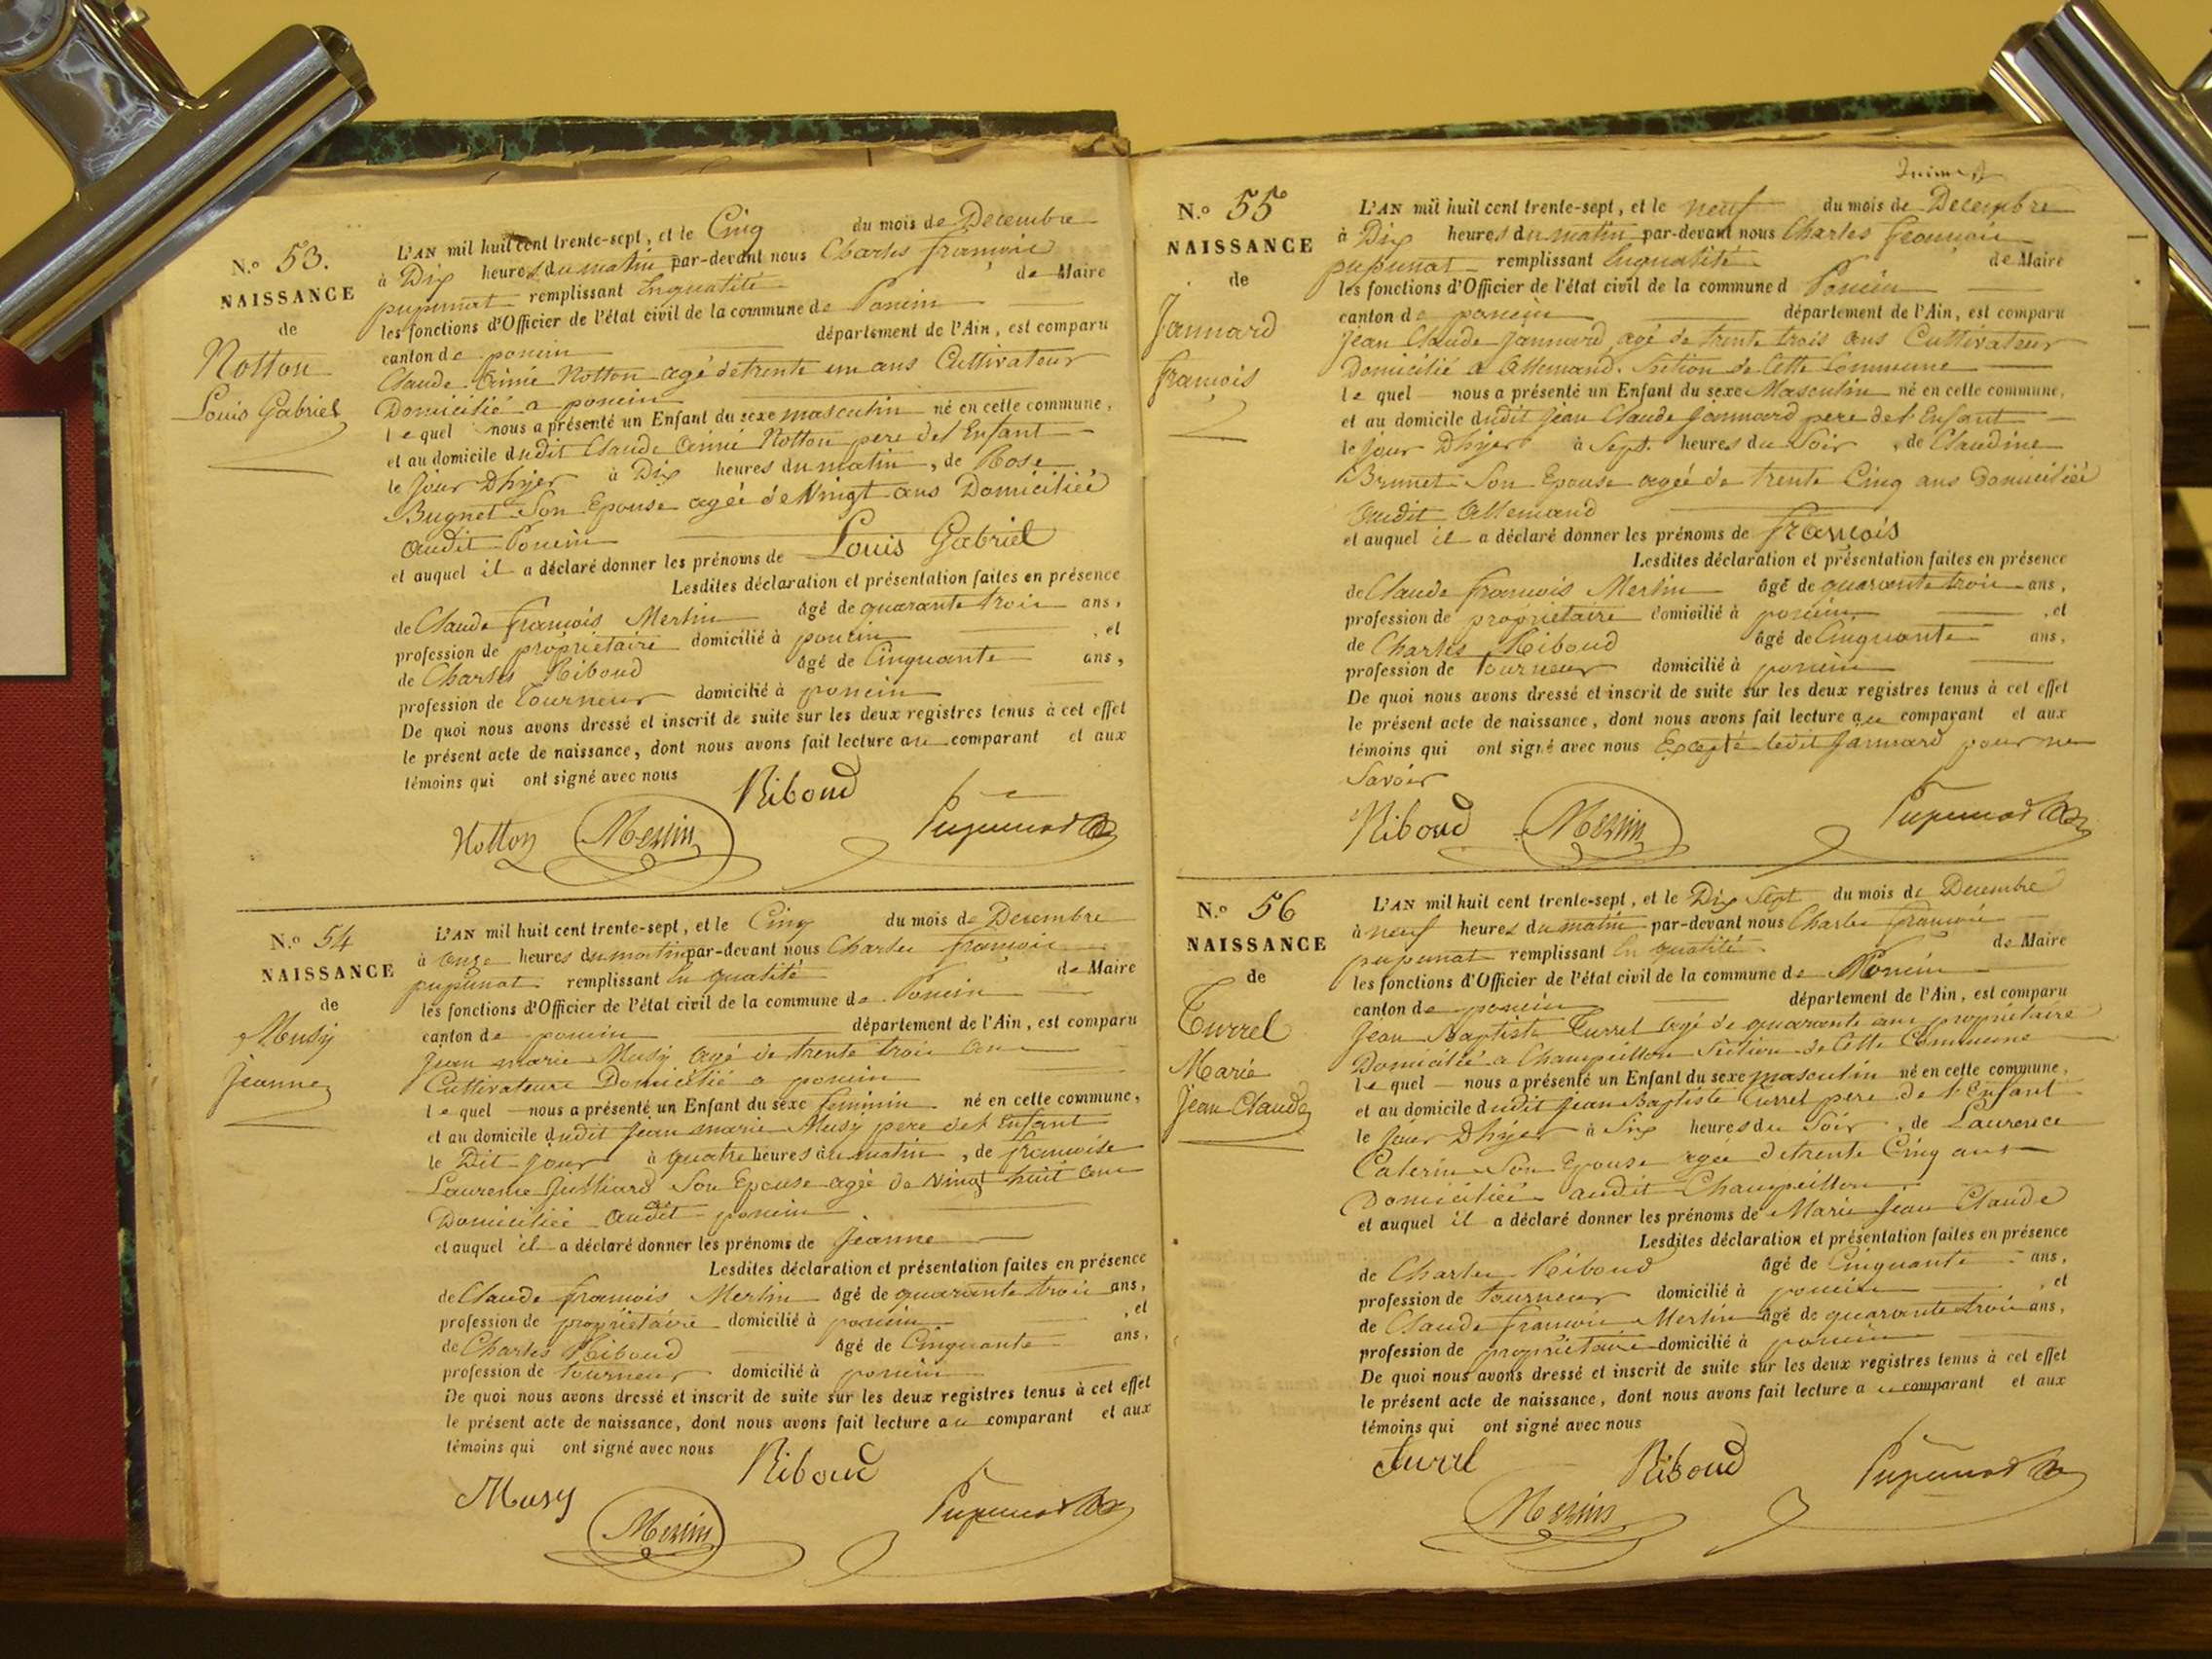 N.o 53.
NAISSANCE
de
Notton
Louis Gabriel
L'AN mil huit cent trente-sept, et le Cinq du mois de Decembre
à Dix heures du matin par-devant nous Charles françois
pupunat remplissant En qualité de Maire
les fonctions d'Officier de l'état civil de la commune de Poncin
canton de poncin département de l'Ain, est comparu
Claude Aimé Notton agé de trente un ans Cultivateur
Domicilié a poncin
lequel nous a présenté un Enfant du sexe masculin né en cette commune,
et au domicile dudit Claude Aimé Notton pere del Enfant
le jour Dhyer à Dix heures du matin, de Rose
Bugnet Son Epouse agée de Vingt ans Domiciliée
audit Poncin
et auquel il a déclaré donner les prénoms de Louis Gabriel
Lesdites déclaration et présentation faites en présence
de Claude françois Merlin âgé de quarante trois ans,
profession de propriétaire domicilié à poncin, et
de Charles Riboud âgé de Cinquante ans,
profession de Tourneur domicilié à poncin
De quoi nous avons dressé et inscrit de suite sur les deux registres tenus à cet effet
le présent acte de naissance, dont nous avons fait lecture au comparant et aux
témoins qui ont signé avec nous
Riboud
Notton Merlin Pupunat
N.o 54
NAISSANCE
de
Musy
Jeanne
L'AN mil huit cent trente-sept, et le Cinq du mois de Decembre
à onze heures du matin par-devant nous Charles françois
pupunat remplissant En qualité de Maire
les fonctions d'Officier de l'état civil de la commune de Poncin
canton de poncin département de l'Ain, est comparu
Jean marie Musy agé de trente trois ans
Cultivateur Domicilié a poncin
lequel nous a présenté un Enfant du sexe feminin né en cette commune,
et au domicile dudit Jean marie Musy pere del Enfant
le Dit jour à quatre heures du matin, de françoise
Laurence Julliard Son Epouse agée de Vingt huit ans
Domiciliée audit poncin
et auquel il a déclaré donner les prénoms de Jeanne
Lesdites déclaration et présentation faites en présence
de Claude françois Merlin âgé de quarante trois ans,
profession de propriétaire domicilié à poncin, et
de Charles Riboud âgé de Cinquante ans,
profession de tourneur domicilié à poncin
De quoi nous avons dressé et inscrit de suite sur les deux registres tenus à cet effet
le présent acte de naissance, dont nous avons fait lecture au comparant et aux
témoins qui ont signé avec nous
Riboud
Musy Merlin Pupunat
N.o 55
NAISSANCE
de
Jannard
françois
L'AN mil huit cent trente-sept, et le neuf du mois de Decembre
à Dix heures du matin par-devant nous Charles françois
pupunat remplissant En qualité de Maire
les fonctions d'Officier de l'état civil de la commune d Poncin
canton de poncin département de l'Ain, est comparu
Jean Claude Jannard agé de trente trois ans Cultivateur
Domicilié a Allemand. Section de Cette Commune
lequel nous a présenté un Enfant du sexe Masculin né en cette commune,
et au domicile dudit Jean Claude Jannard pere de l'Enfant
le jour Dhyer à Sept heures du Soir, de Claudine
Brunet Son Epouse agée de trente Cinq ans Domiciliée
audit Allemand
et auquel il a déclaré donner les prénoms de françois
Lesdites déclaration et présentation faites en présence
de Claude françois Merlin âgé de quarante trois ans,
profession de propriétaire domicilié à poncin, et
de Charles Riboud âgé de Cinquante ans,
profession de Tourneur domicilié à poncin
De quoi nous avons dressé et inscrit de suite sur les deux registres tenus à cet effet
le présent acte de naissance, dont nous avons fait lecture au comparant et aux
témoins qui ont signé avec nous Excepté ledit Jannard pour ne
Savoir
Riboud Merlin Pupunat
N.o 56
NAISSANCE
de
Turrel
Marie
Jean Claude
L'AN mil huit cent trente-sept, et le Dix Sept du mois de Decembre
à neuf heures du matin par-devant nous Charles françois
pupunat remplissant En qualité de Maire
les fonctions d'Officier de l'état civil de la commune de Poncin
canton de poncin département de l'Ain, est comparu
Jean Baptiste Turrel agé de quarante ans propriétaire
Domicilié a Champeillon Section de Cette Commune
lequel nous a présenté un Enfant du sexe masculin né en cette commune,
et au domicile dudit Jean Baptiste Turrel pere de l'Enfant
le jour Dhyer à Six heures du Soir, de Laurence
Caterin Son Epouse agée de trente Cinq ans
Domiciliée audit Champeillon
et auquel il a déclaré donner les prénoms de Marie Jean Claude
Lesdites déclaration et présentation faites en présence
de Charles Riboud âgé de Cinquante ans,
profession de Tourneur domicilié à poncin, et
de Claude françois Merlin âgé de quarante trois ans,
profession de propriétaire domicilié à poncin
De quoi nous avons dressé et inscrit de suite sur les deux registres tenus à cet effet
le présent acte de naissance, dont nous avons fait lecture au comparant et aux
témoins qui ont signé avec nous
Turrel Riboud Pupunat
Merlin